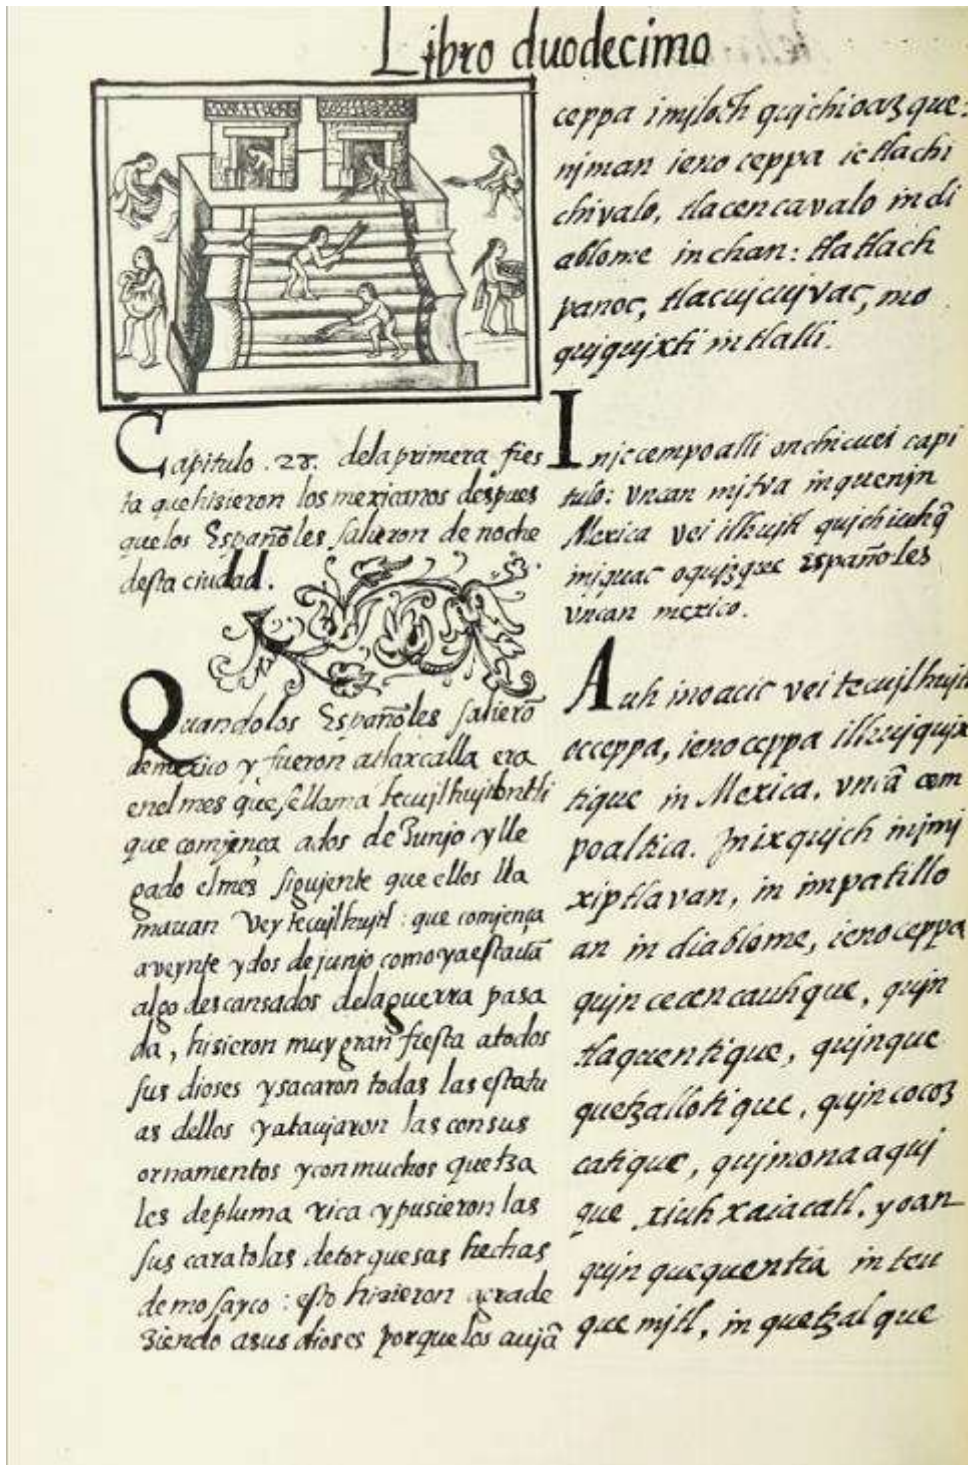 Libro duodecimo
Capitulo .28. dela primera fies
ta que hisieron los mexicanos despues
que los Españoles salieron de noche
desta ciudad.
Quando los Españoles salierõ
de mexico y fueron a tlaxcalla era
en el mes que se llama tecujlhujtontli
que comjença a dos de Junjo y lle
gado el mes sigujente que ellos lla
mauan Vey tecujlhujtl: que comjença
a veynte y dos de junjo como ya estauã
algo descansados dela guerra pasa
da, hisieron muy gran fiesta a todos
sus dioses y sacaron todas las estatu
as dellos y ataujaron las con sus
ornamentos y con muchos quetza
les de pluma rica y pusieron las
sus caratolas de torquesas hechas
de mosayco: esto hizieron agrade
ziendo a sus dioses porque los aujã
ceppa
njman ieno ceppa ic tlachi
chivalo, tlacencavalo in di
ablome inchan: tlatlach
panoc, tlacujcujvac, mo
qujqujxti in tlalli.
Injc cempoalli onchicuei capi
tulo: vncan mjtva in quenjn
Mexica vei ilhujtl qujchiuhq̃
in jquac oqujzque españoles
vncan mexico.
Auh in oacic vei tecujlhujtl
occeppa, ieno ceppa ilhujqujx
tique in Mexica, vncã cem
poaltica. Jn ixqujch injmj
xiptlavan, in impatillo
an in diablome, ieno ceppa
qujncecencauhque, qujn
tlaquentique, qujnque
quetzallotique, qujncocoz
catique, qujmonaaquj
que xiuhxaiacatl, yoan
qujnquequentia in teu
quemjtl, in quetzalque